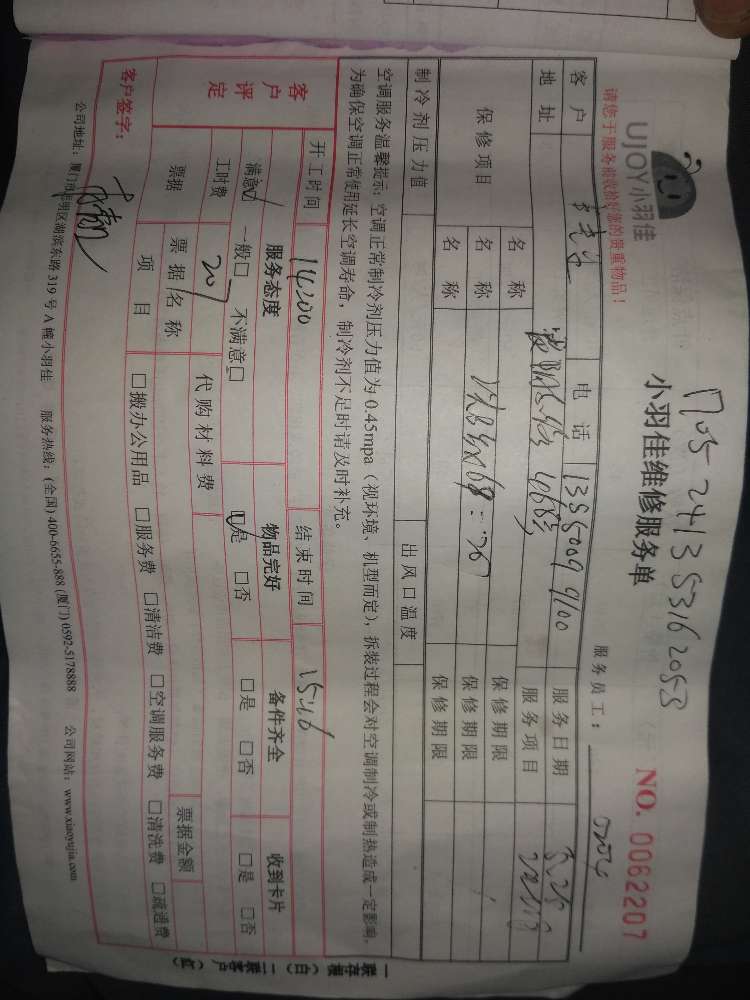 UJOY小羽佳
请您于服务前收拾好您的贵重物品！
1705 2413 5316 2053
小羽佳维修服务单
NO. 0062207
服务员工：
客户 电话 13850099100 服务日期 3.25
地址 服务项目
保修项目 名称 保修期限
名称 保修期限
名称 保修期限
制冷剂压力值 出风口温度
空调服务温馨提示：空调正常制冷剂压力值为 0.45mpa（视环境、机型而定），拆装过程会对空调制冷或制热造成一定影响，
为确保空调正常使用延长空调寿命，制冷剂不足时请及时补充。
开工时间 14:00 结束时间 15:16
客户评定 服务态度 物品完好 备件齐全 收到卡片
满意☑ 一般□ 不满意□ ☑是 □否 □是 □否 □是 □否
工时费 207 代购材料费
票据 票据名称 票据金额
项目 □搬办公用品 □服务费 □清洁费 □空调服务费 □清洗费 □疏通费
客户签字：
公司地址：厦门市思明区湖滨东路 319 号 A 幢小羽佳 服务热线：(全国) 400-6655-888 (厦门) 0592-5178888 公司网站：www.xiaoyujia.com
一联存根（白）二联客户（红）